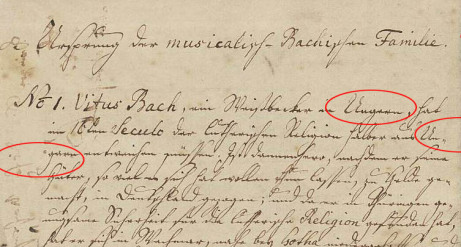 Ursprung der musicalisch-Bachischen Familie.
No 1. Vitus Bach, ein Weißbecker in Ungern, hat
im 16ten Seculo der lutherischen Religion halber aus Un-
garn entweichen müßen. Ist dannenhero, nachdem er seine
Güter, so viel es sich hat wollen thun laßen, zu Gelde ge-
macht, in Deutschland gezogen; und da er in Thüringen ge-
nugsame Sicherheit für die lutherische Religion gefunden, hat
er sich in Wechmar, nahe bey Gotha